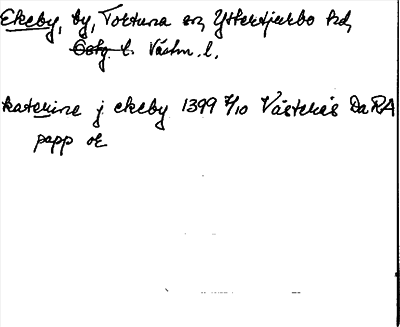 Ekeby, by, Tortuna sn, Yttertjurbo hd,
Östg. l. Västm. l.
katerine j ekeby 1399 7/10 Västerås DaRA
papp or